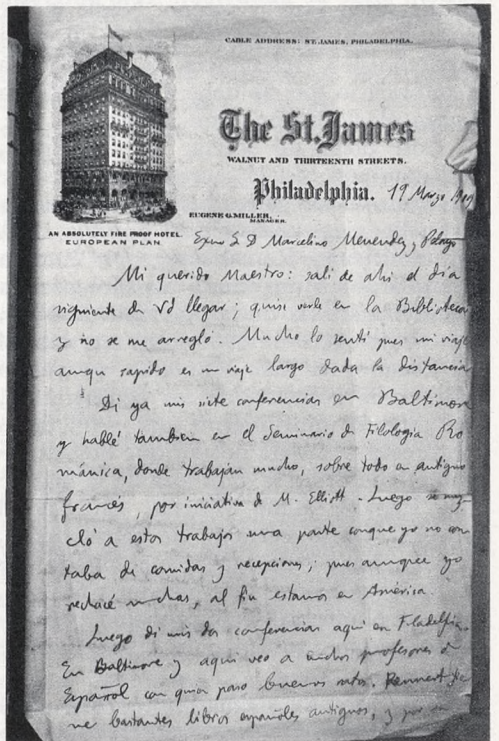 CABLE ADDRESS: ST. JAMES, PHILADELPHIA.
The St. James
WALNUT AND THIRTEENTH STREETS.
Philadelphia. 19 Marzo 1909
EUGENE G. MILLER,
MANAGER.
AN ABSOLUTELY FIRE PROOF HOTEL.
EUROPEAN PLAN.
Exmo S. D Marcelino Menendez y Pelayo
Mi querido Maestro: salí de ahi el dia
siguiente de Vd llegar; quise verle en la Biblioteca
y no se me arregló. Mucho lo sentí pues mi viaje
aunqu rapido es un viaje largo dada la distancia
Di ya mis siete conferencias en Baltimore
y hablé tambien en el Seminario de Filologia Ro
mánica, donde trabajan mucho, sobre todo en antiguo
francés, por iniciativa de M. Elliott. Luego se mez
cló a estos trabajos una parte conque yo no con
taba de comidas y recepciones; pues aunque yo
rechacé muchas, al fin estamos en América.
Luego di mis dos conferencias aqui en Filadelfia
En Baltimore y aqui veo a muchos profesores de
Español con quien paso buenos ratos. Rennert tie
ne bastantes libros españoles antiguos, y